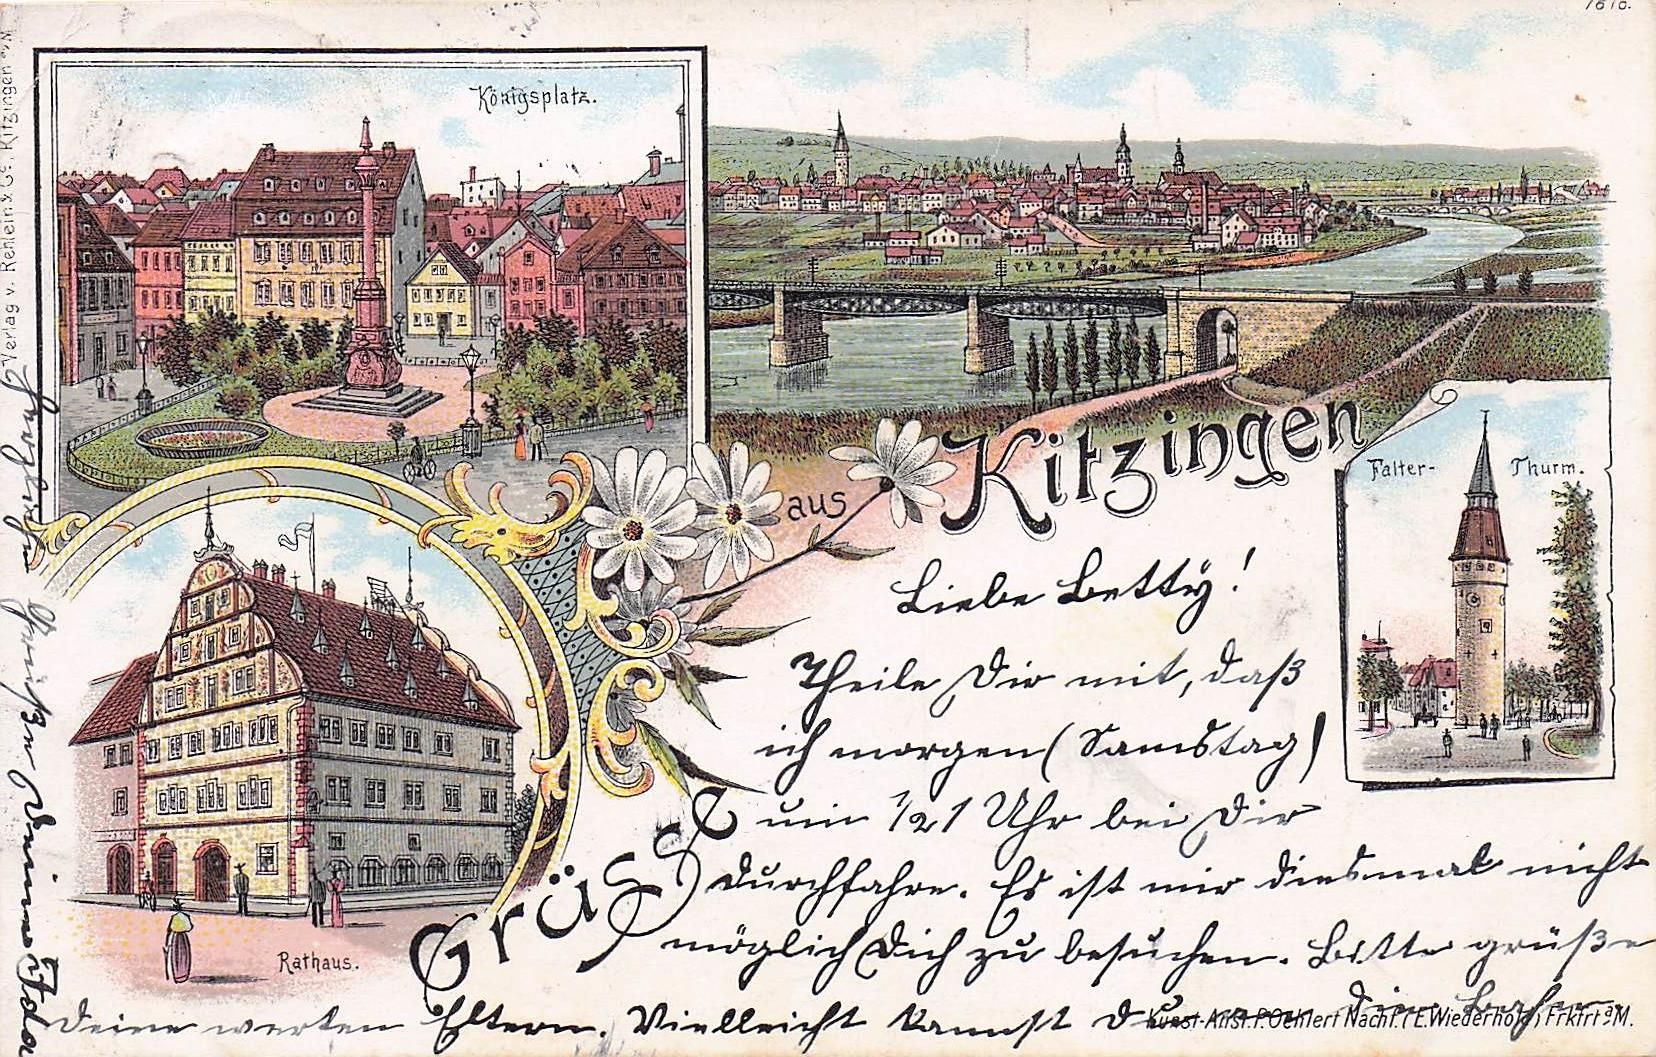 1616.
Königsplatz.
Verlag v. Rehlein & Co., Kitzingen a/M.
Grüsse
aus
Kitzingen
Falter-Thurm.
Rathaus.
Liebe Betty!
Theile Dir mit, daß
ich morgen (Samstag)
um 1/21 Uhr bei Dir
durchfahre. Es ist mir diesmal nicht
möglich Dich zu besuchen. Bitte grüße
Deine werten Eltern. Vielleicht kannst Du an die Bahn
Herzlichen Grüßen Deine Ida
Kunst-Anst. P. Oehlert Nachf. (E. Wiederhold) Frkfrt a/M.